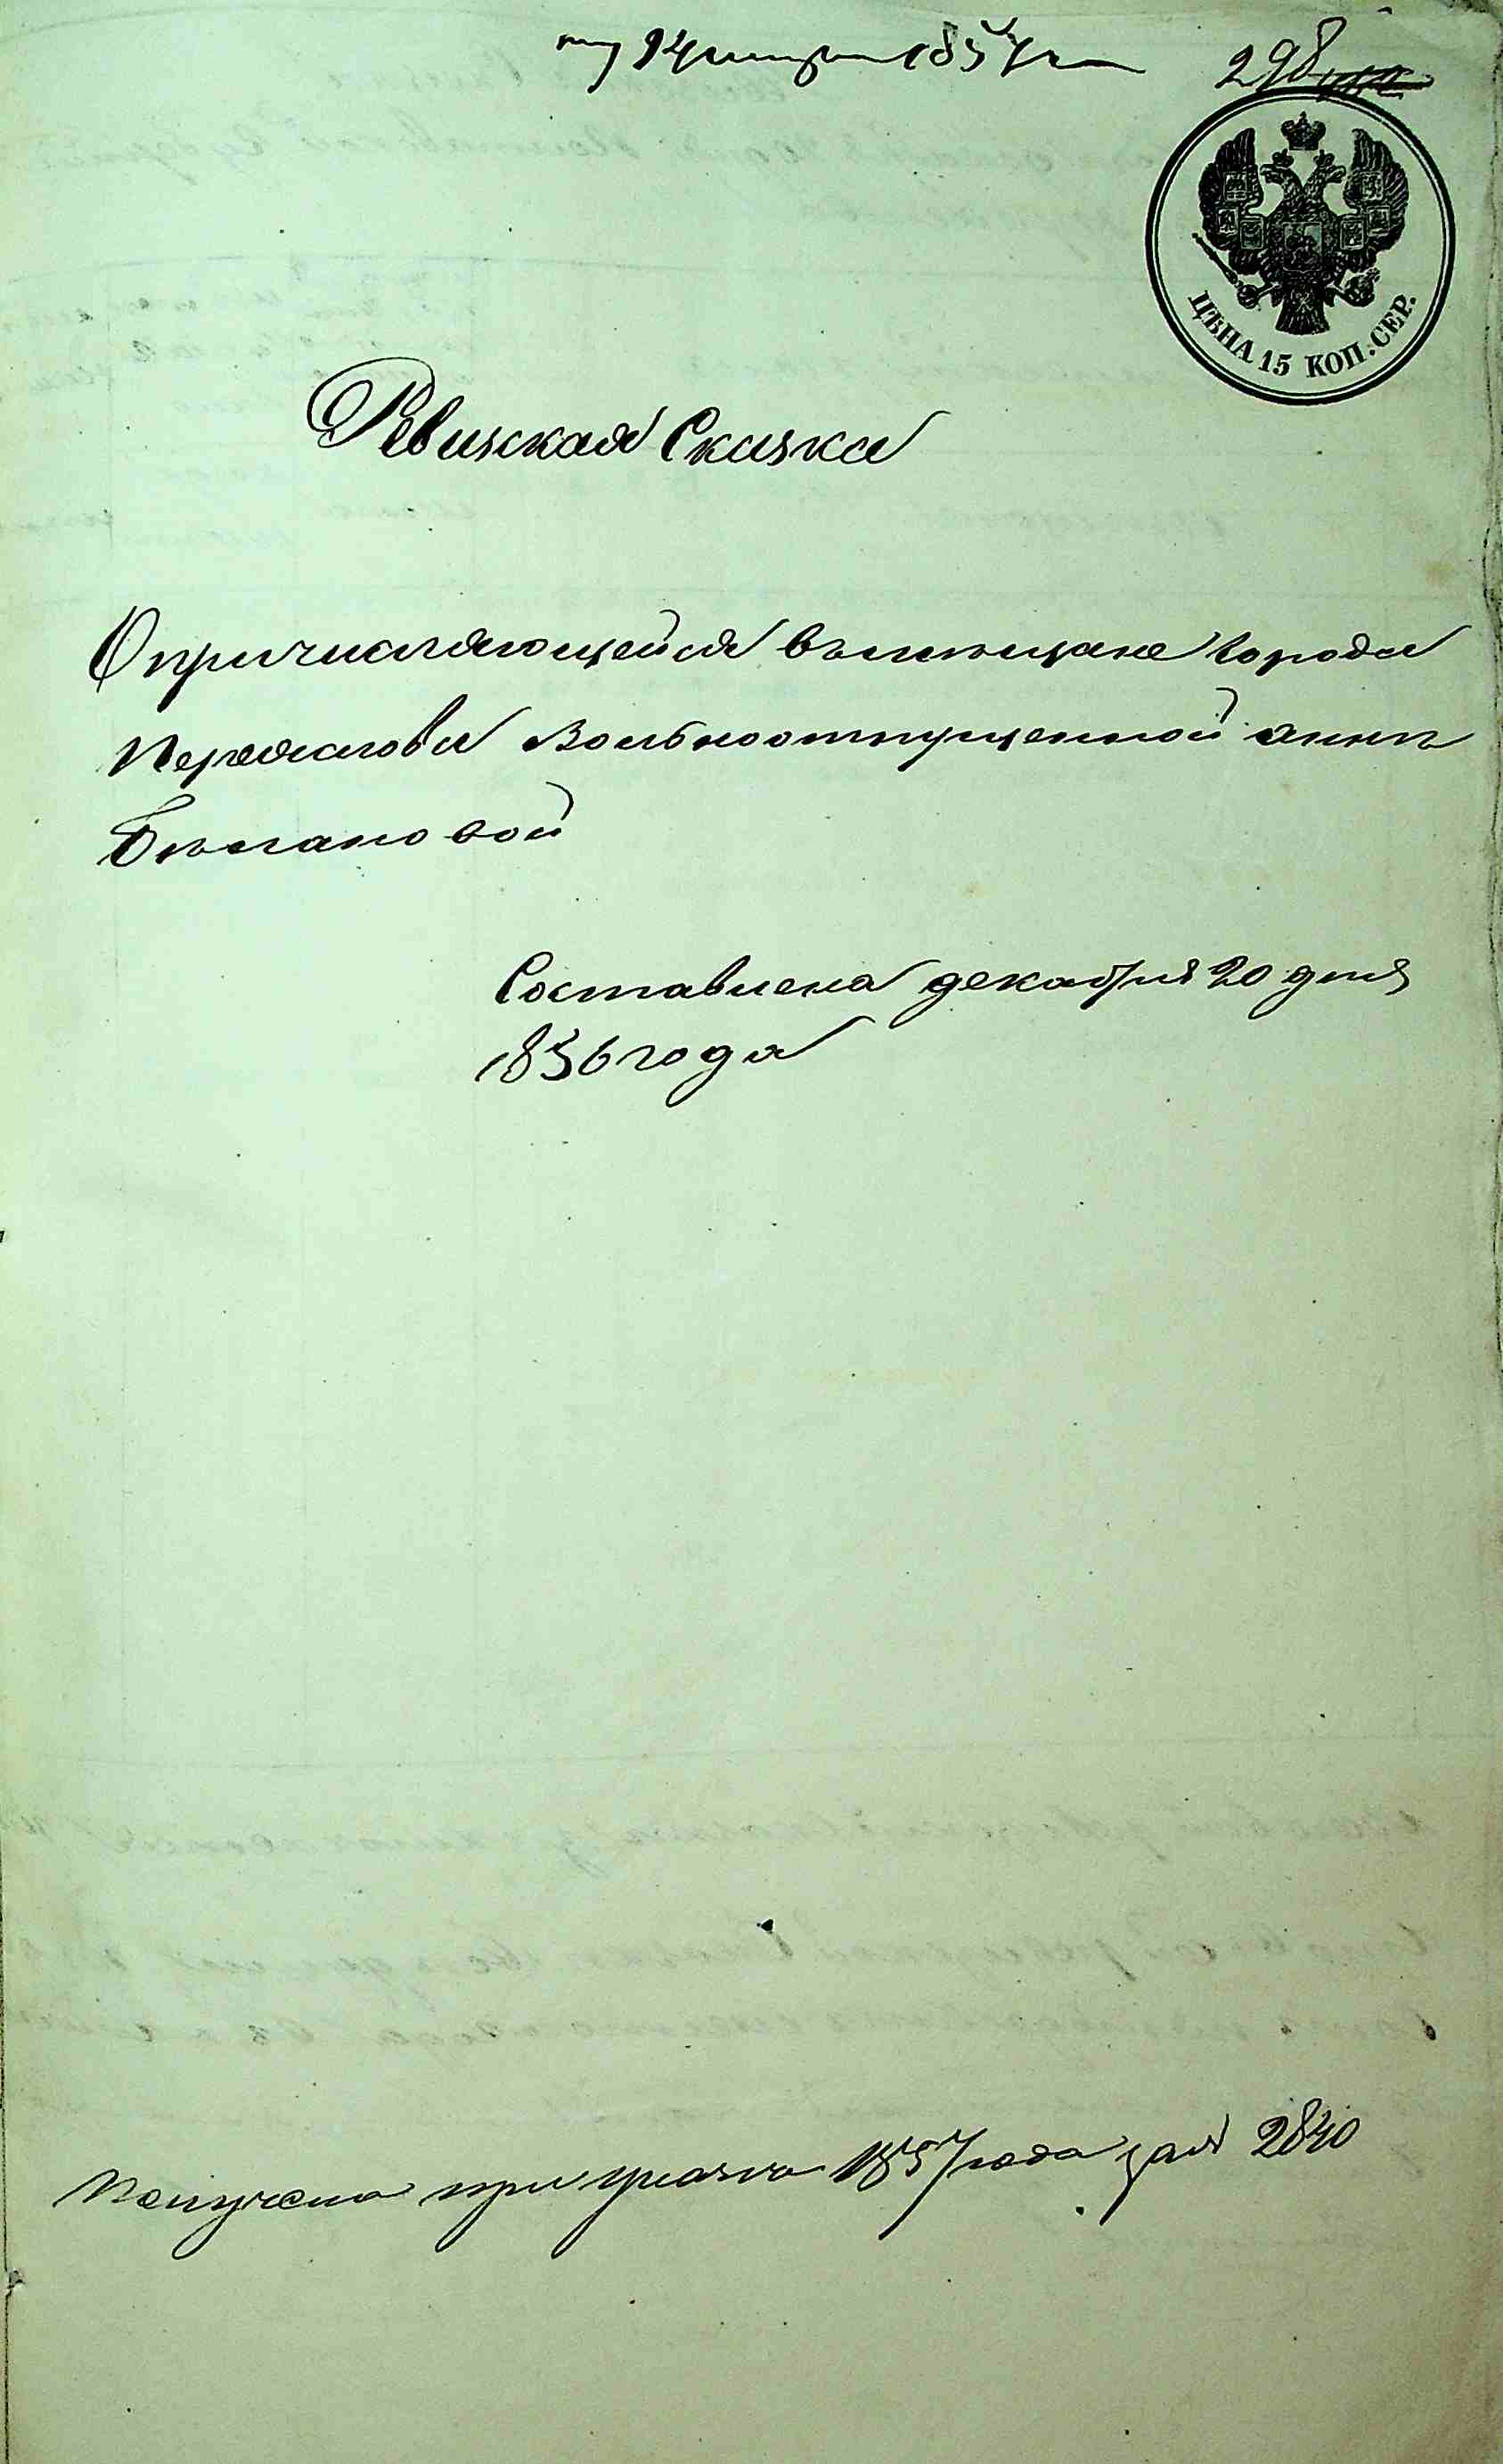 14 1857 г
298
ЦѢНА 15 КОП. СЕР.
Ревизская Сказка
О причисляющейся въ мѣщане города
Переяслова Вольноотпущенной анне
Билановой
Составлена декабря 20 дня
1856 года
Получена при указе 1857 года за № 2840